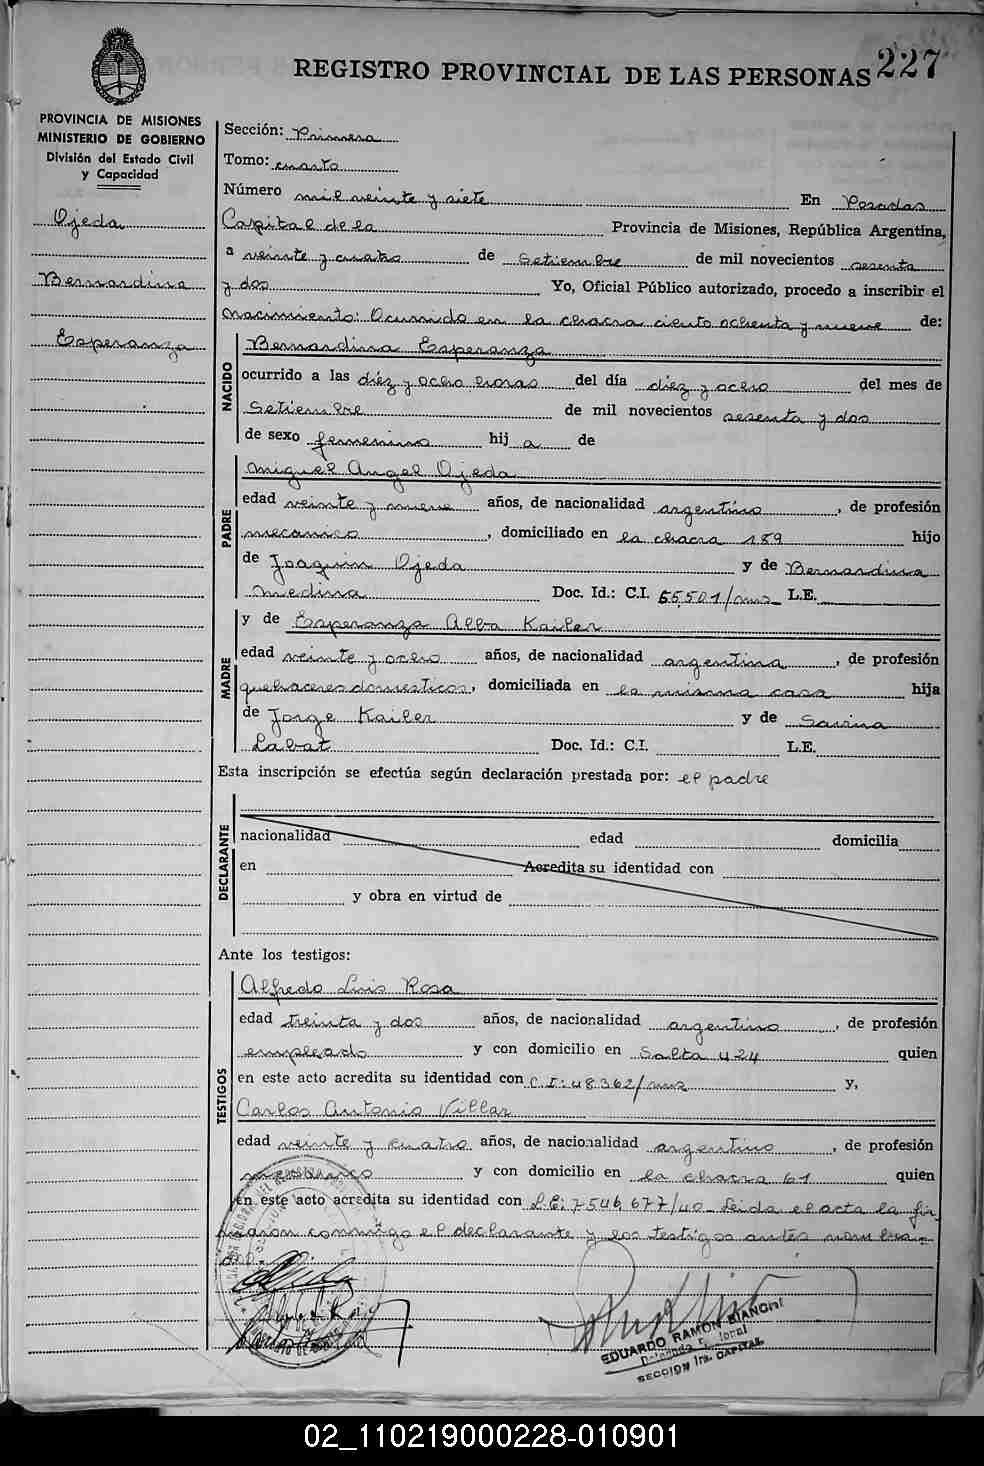 REGISTRO PROVINCIAL DE LAS PERSONAS 227
PROVINCIA DE MISIONES
MINISTERIO DE GOBIERNO
División del Estado Civil
y Capacidad
Ojeda
Bernardina
Esperanza
Sección: Primera
Tomo: cuarto
Número mil veinte y siete En Posadas
Capital de la Provincia de Misiones, República Argentina,
a veinte y cuatro de Setiembre de mil novecientos sesenta
y dos Yo, Oficial Público autorizado, procedo a inscribir el
nacimiento: Ocurrido en la chacra ciento ochenta y nueve de:
NACIDO
Bernardina Esperanza
ocurrido a las diéz y ocho horas del día diéz y ocho del mes de
Setiembre de mil novecientos sesenta y dos
de sexo femenino hij a de
PADRE
Miguel Angel Ojeda
edad veinte y nueve años, de nacionalidad argentino, de profesión
mecanico, domiciliado en la chacra 189 hijo
de Joaquin Ojeda y de Bernardina
Medina Doc. Id.: C.I. 55.501/mns L.E.
MADRE
y de Esperanza Alba Kailer
edad veinte y ocho años, de nacionalidad argentina, de profesión
quehaceres domesticos, domiciliada en la misma casa hija
de Jorge Kailer y de Savina
Labat Doc. Id.: C.I. L.E.
Esta inscripción se efectúa según declaración prestada por: el padre
DECLARANTE
nacionalidad edad domicilia
en Acredita su identidad con
y obra en virtud de
Ante los testigos:
TESTIGOS
Alfredo Luis Rosa
edad treinta y dos años, de nacionalidad argentino, de profesión
empleado y con domicilio en Salta 424 quien
en este acto acredita su identidad con C.I: 48.362/mns y,
Carlos Antonio Villar
edad veinte y cuatro años, de nacionalidad argentino, de profesión
mecanico y con domicilio en la chacra 61 quien
en este acto acredita su identidad con L.E: 7.546.677/40 Leida el acta la fir
maron conmigo el declarante y los testigos antes nombra
dos.
EDUARDO RAMON BIANCHI
SECCION 1ra. CAPITAL
02_110219000228-010901